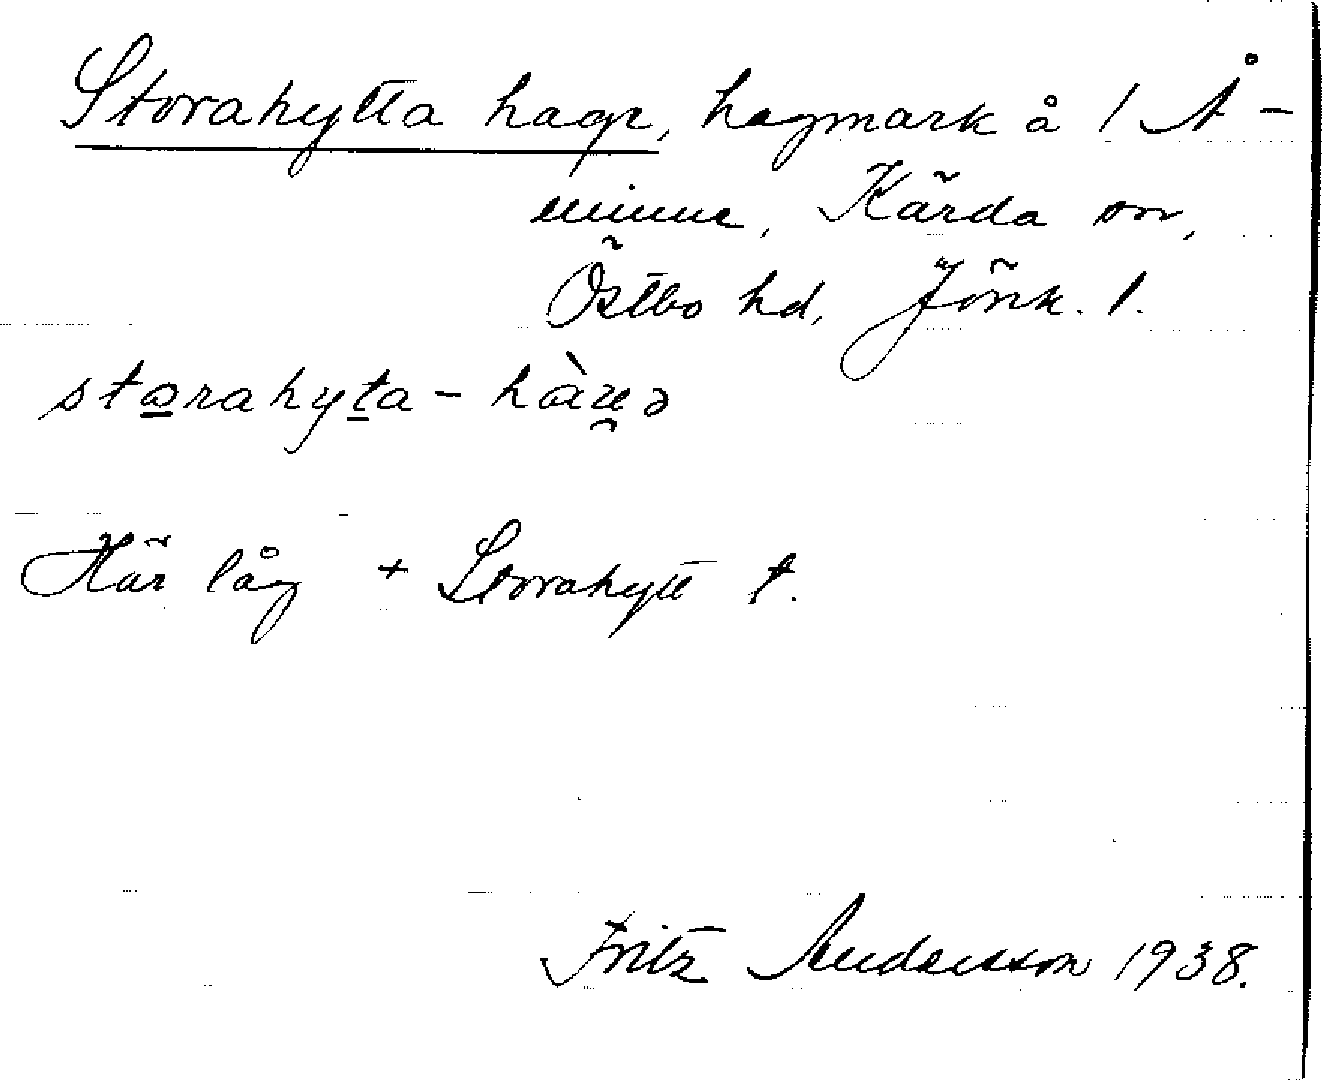 Storahytta hage, hagmark å 1 Å-
minne, Kärda sn,
Östbo hd, Jönk. l.
storahyta - hàuə
Här låg + Storahytt t.
Fritz Andersson 1938.